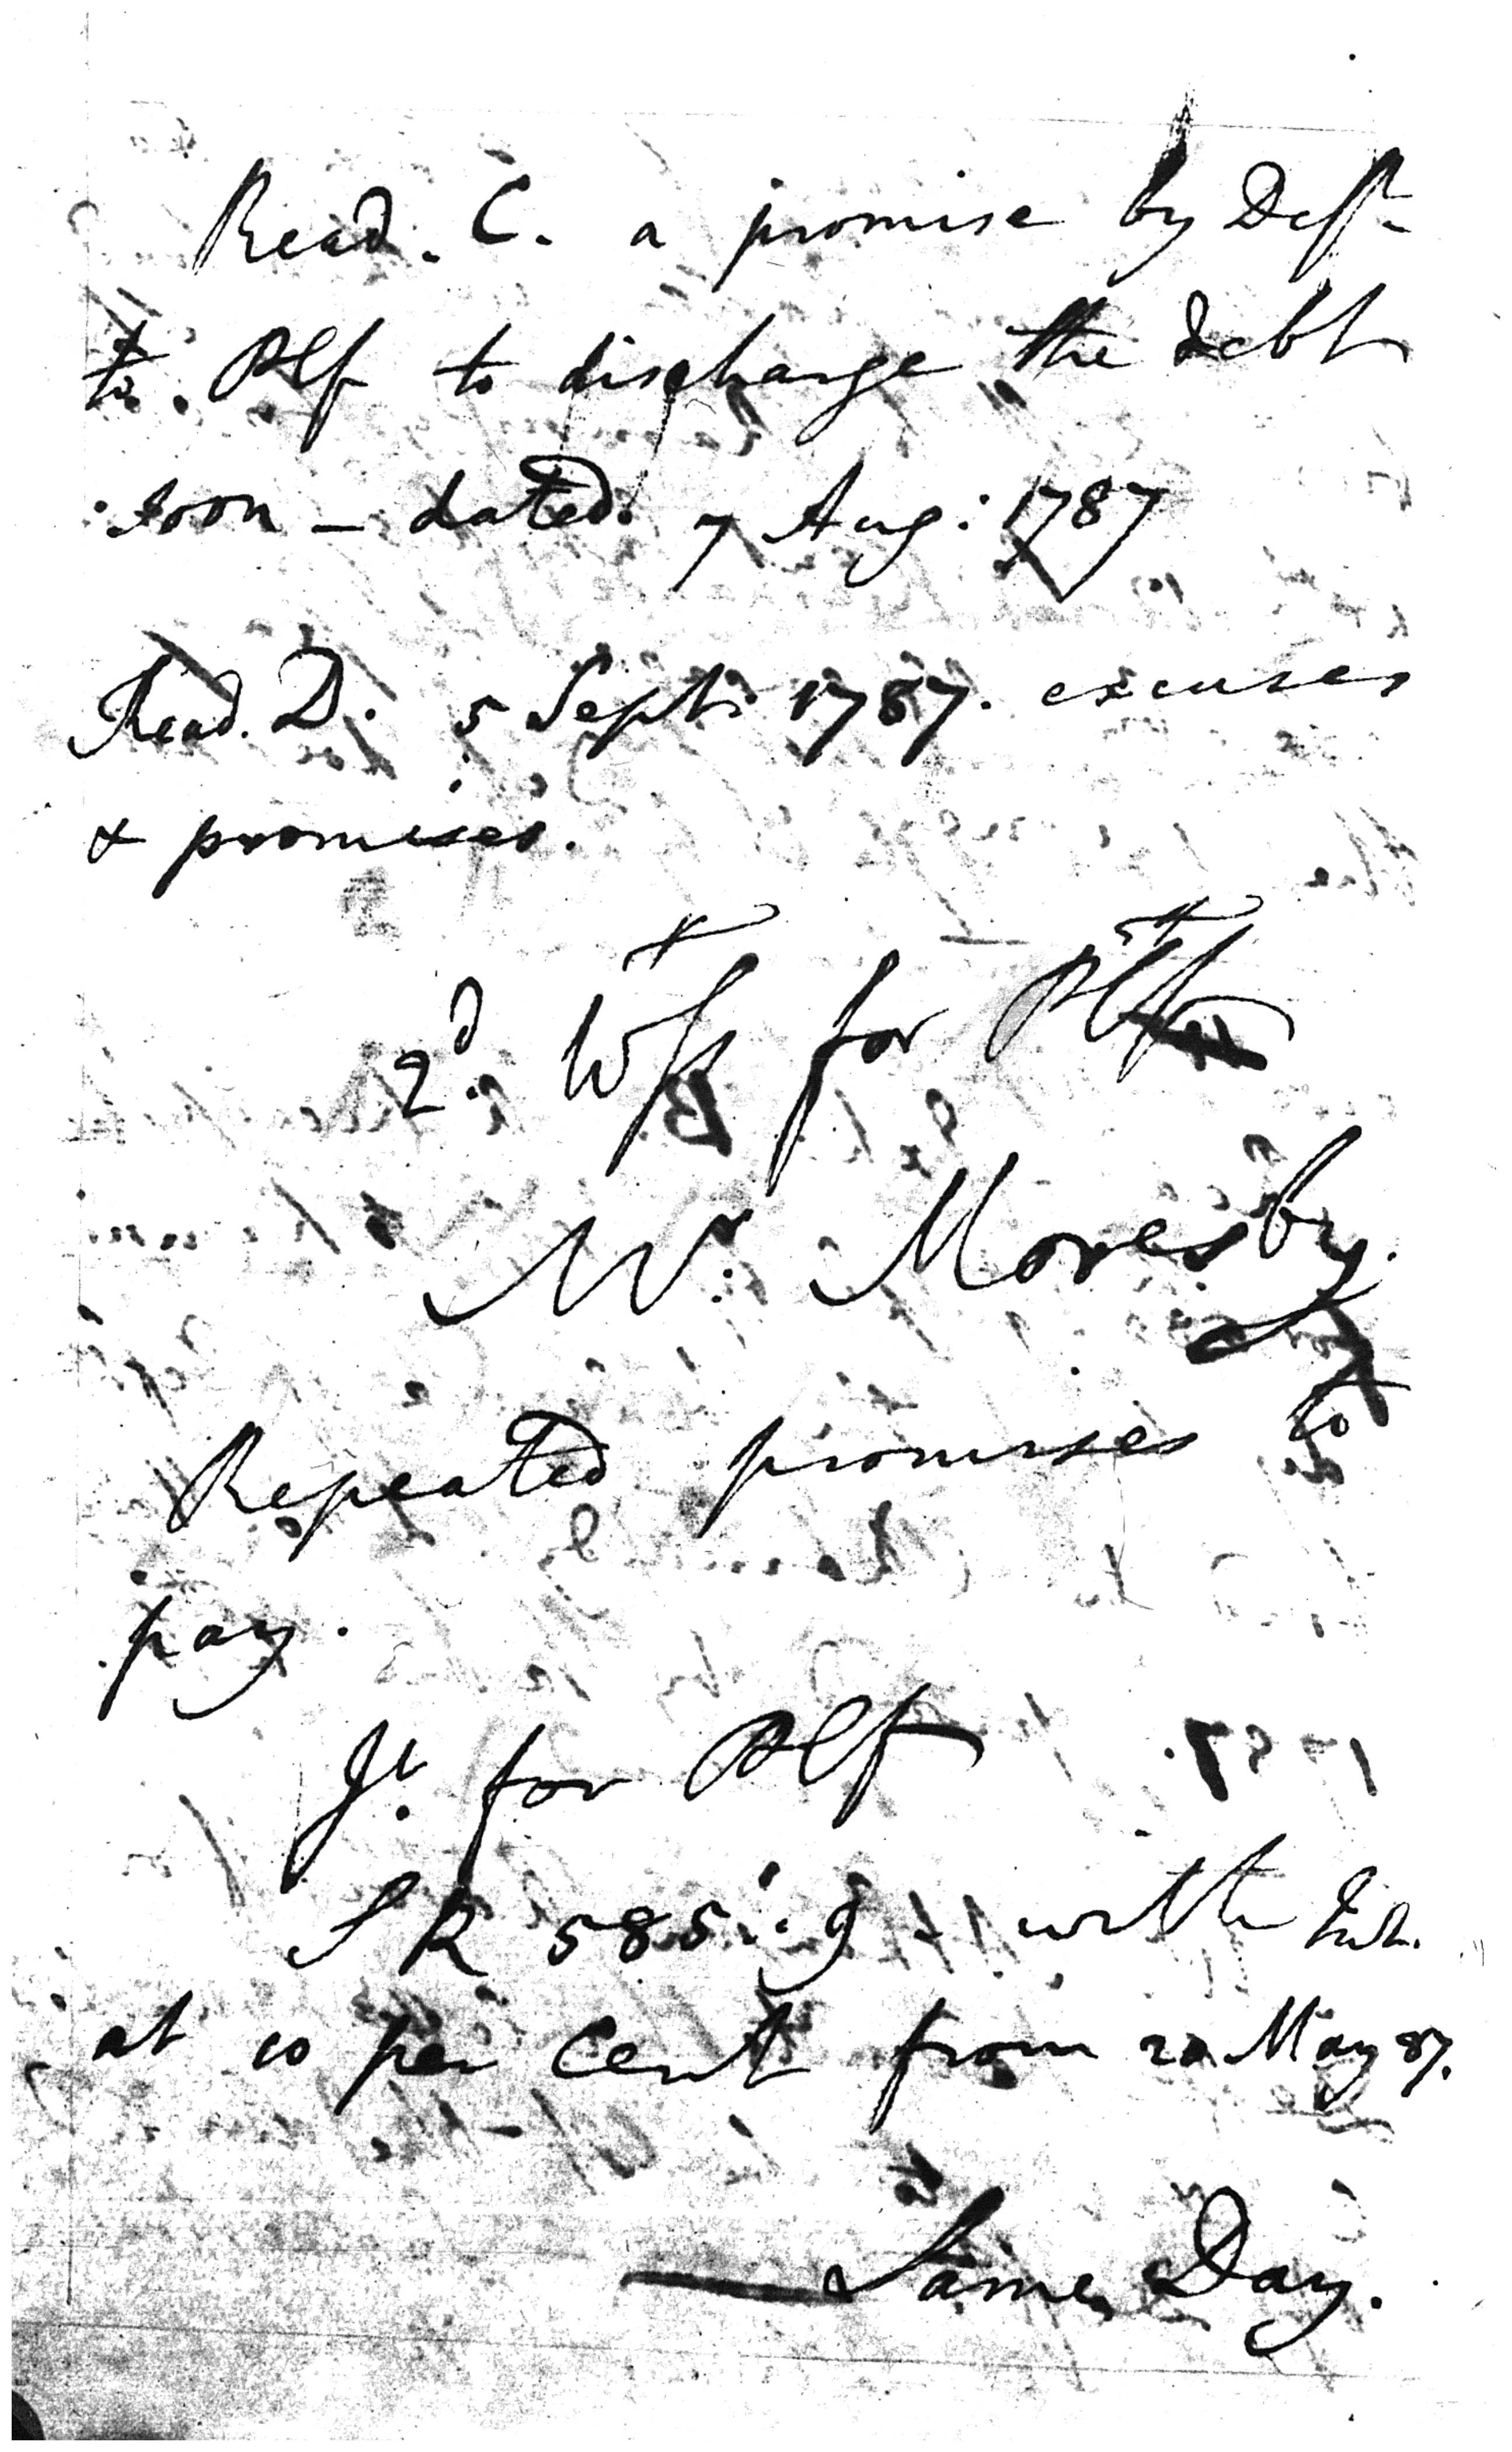 Read. C. a promise by Deft.
to. Plf to discharge the debt
soon — dated. 7 Aug: 1787
Read. D. 5 Sept. 1787. excuses
& promises.
2d. Wss for Plf
Mr. Moresby.
Repeated promises to
pay.
Jt. for Plf
SR 585:9 with Int.
at 10 per Cent from 20 May 87.
— Same Day.